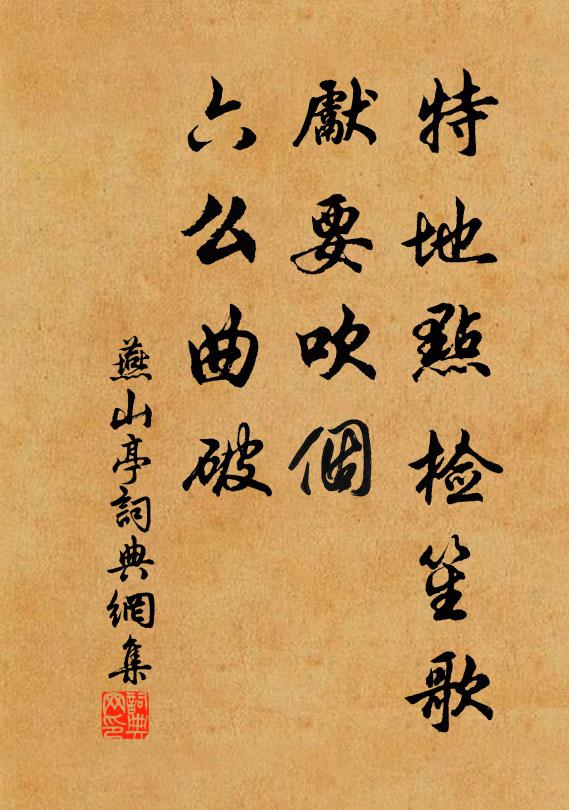 特地點檢笙歌
獻要吹個
六么曲破
燕山亭詞典網集
詞典
网印